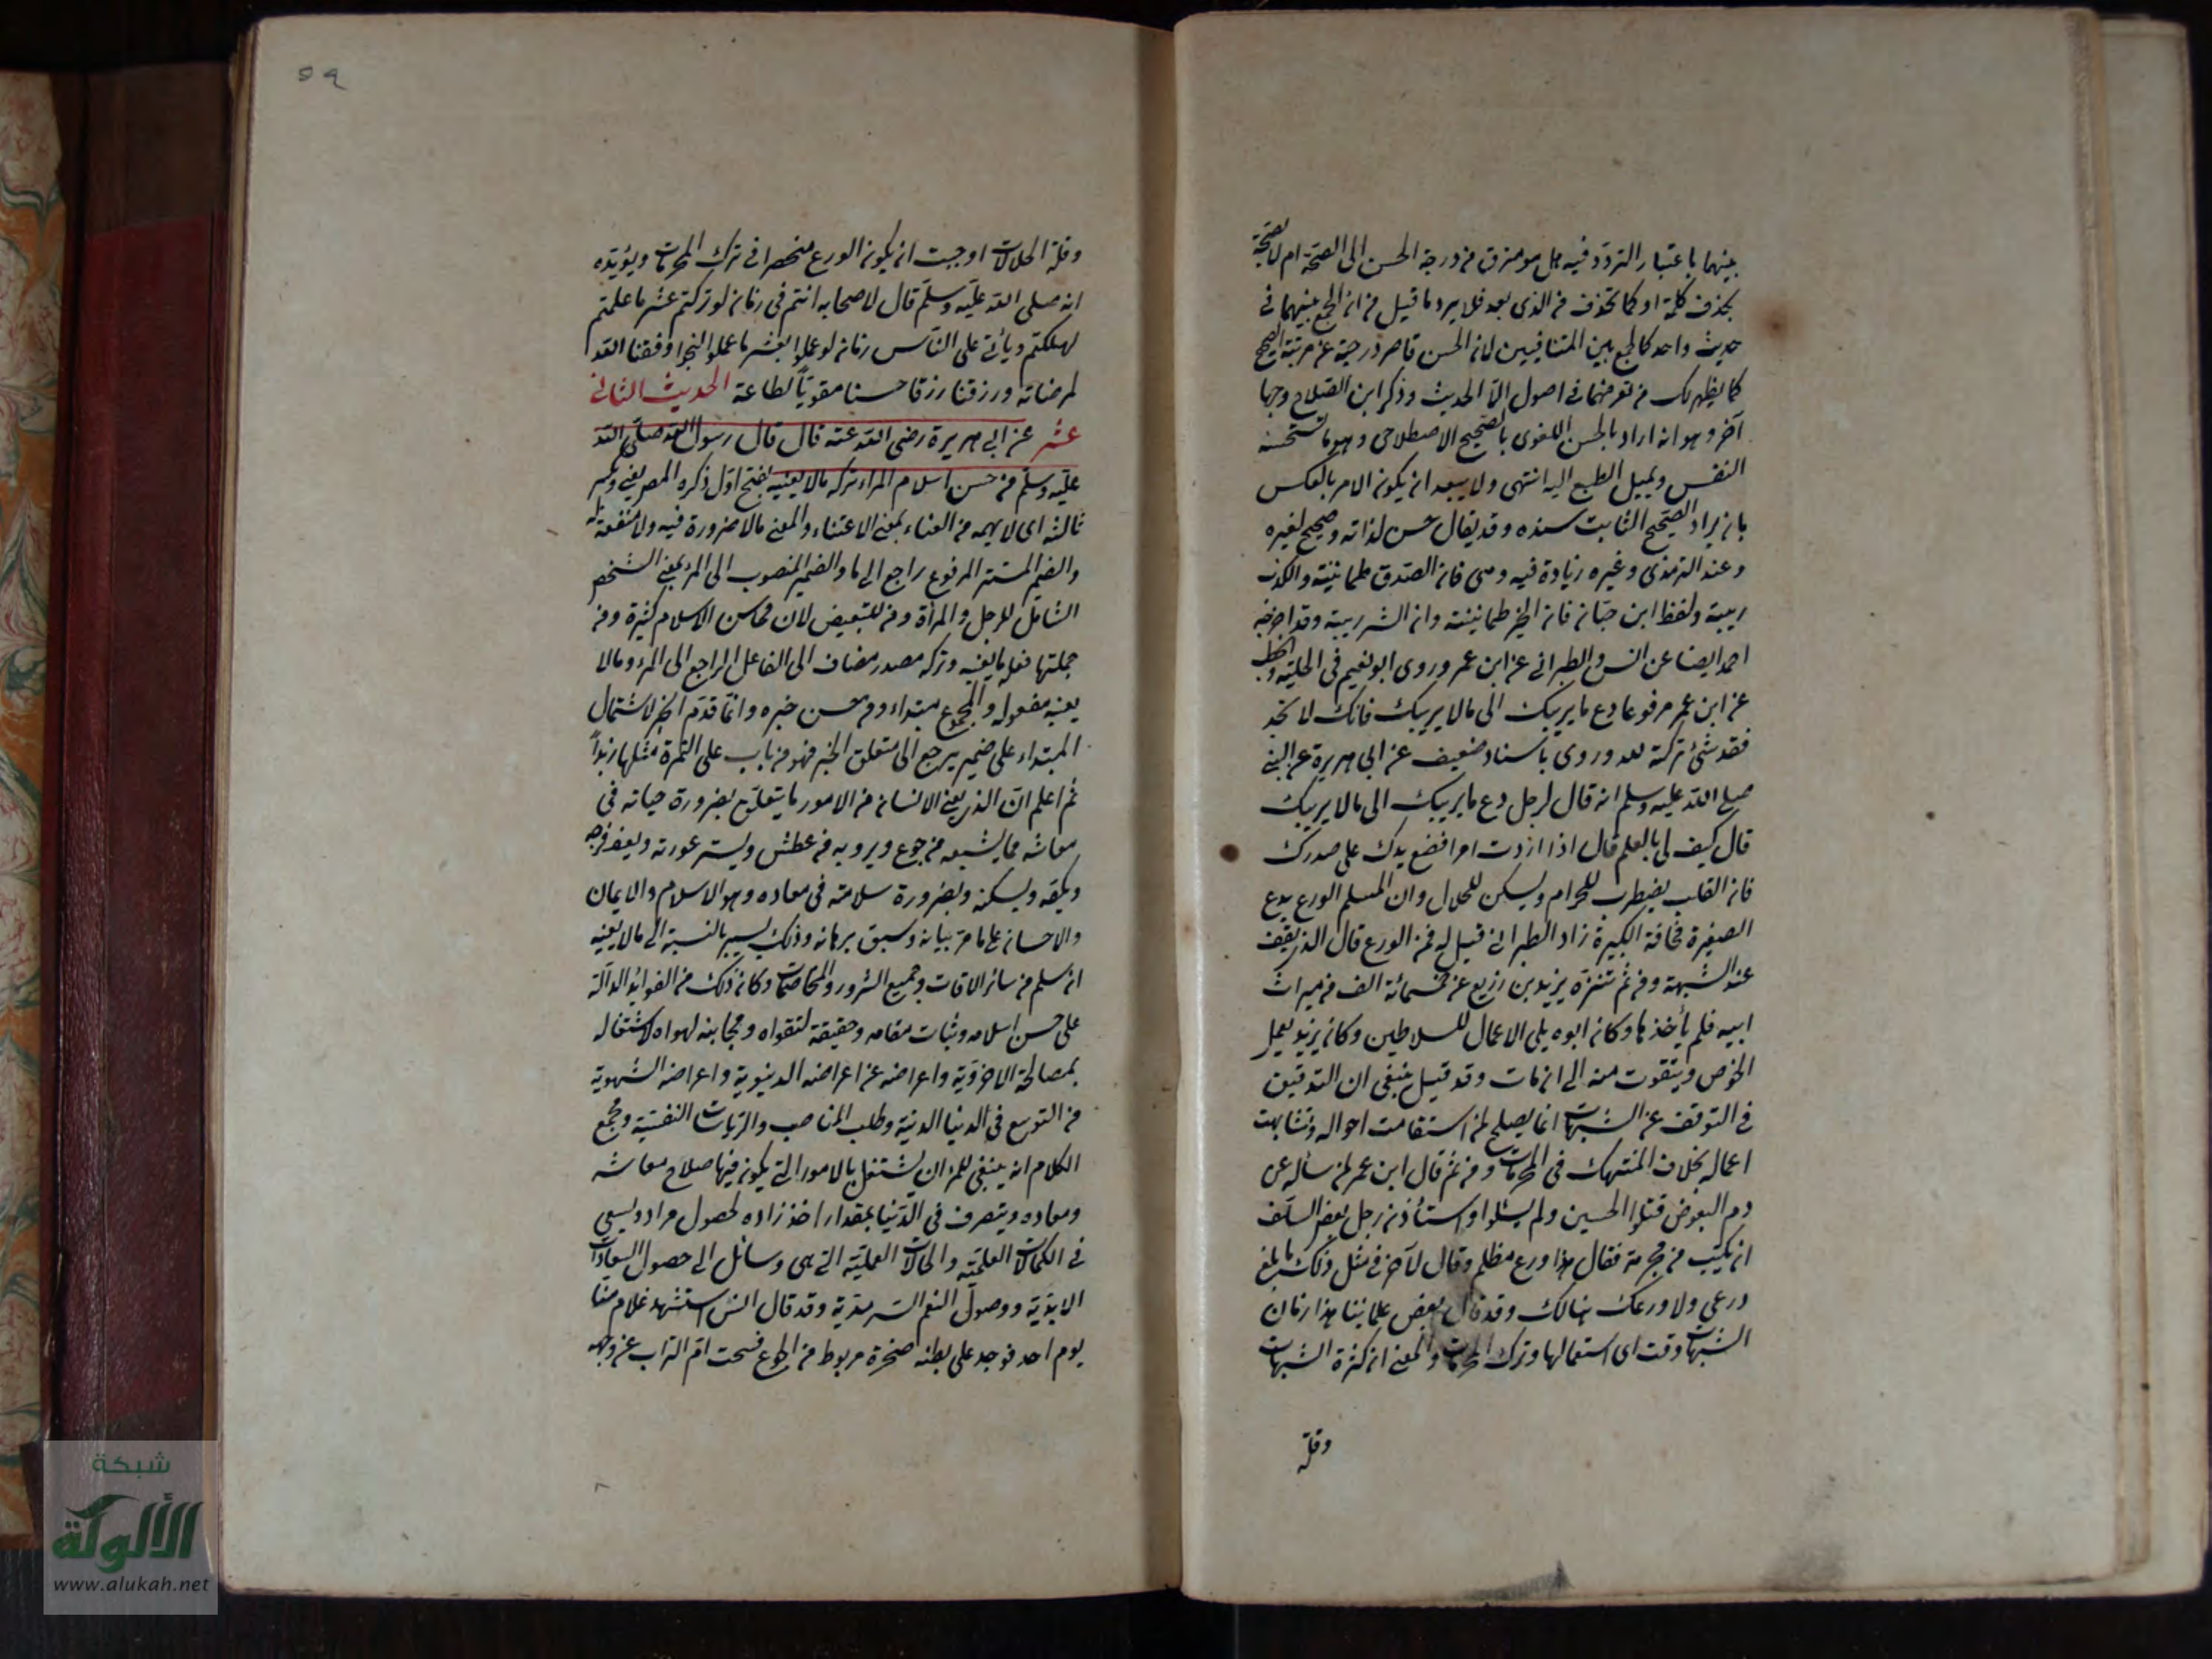 بينهما باعتبار التردد فيه هل هو مترق من درجة الحسن الى الصحة ام لا لصحة
بحذف كلمة او كما تحذف من الذى بعد فلا يرد ما قيل من ان الجمع بينهما فى
حديث واحد كالجمع بين المتنافيين لان الحسن قاصر درجته عن مرتبة الصحيح
كما يظهر لك من تعريفهما فى اصول الحديث وذكر ابن الصلاح وجها
آخر وهو انه اراد بالحسن اللغوى بالصحيح الاصطلاحى وهو ما تستحسنه
النفس ويميل الطبع اليه انتهى ولا يبعد ان يكون الامر بالعكس
بان يراد الصحيح الثابت سنده وقد يقال حسن لذاته وصحيح لغيره
وعند الترمذى وغيره زيادة فيه وهى فان الصدق طمانينة والكذب
ريبة ولفظ ابن حبان فان الخير طمانينة وان الشر ريبة وقد اخرجه
احمد ايضا عن انس والطبرانى عن ابن عمر وروى ابو نعيم فى الحلية والخطيب
عن ابن عمر مرفوعا دع ما يريبك الى ما لا يريبك فانك لا تجد
فقد شئ تركته لله وروى باسناد ضعيف عن ابى هريرة عن النبى
صلى الله عليه وسلم انه قال لرجل دع ما يريبك الى ما لا يريبك
قال كيف لى بالعلم قال اذا اردت امرا فضع يدك على صدرك
فان القلب يضطرب للحرام ويسكن للحلال وان المسلم الورع يدع
الصغيرة مخافة الكبيرة زاد الطبرانى قيل له فمن الورع قال الذى يقف
عند الشبهة ومن ثم تنزه يزيد بن زريع عن خمسمائة الف من ميراث
ابيه فلم يأخذها وكان ابوه يلى الاعمال للسلاطين وكان يزيد يعمل
الخوص ويتقوت منه الى ان مات وقد قيل ينبغى ان التدقيق
فى التوقف عن الشبهات انما يصلح لمن استقامت احواله وتشابهت
اعماله بخلاف المنتهك فى المحرمات ومن ثم قال ابن عمر لمن سأله عن
دم البعوض قتلوا الحسين ولم يسئلوا واستأذن رجل بعض السلف
ان يكتب من محبرته فقال هذا ورع مظلم وقال لآخر فى مثل ذلك ما بلغ
ورعى ولا ورعك هنالك وقد قال بعض علمائنا هذا زمان
الشبهات وقت اى استعمالها وترك المحرمات والمعنى ان كثرة الشبهات
وقلة
وقلة الحلالات اوجبت ان يكون الورع منحصرا فى ترك المحرمات ويؤيده
انه صلى الله عليه وسلم قال لاصحابه انتم فى زمان لو تركتم عشر ما علمتم
لهلكتم ويأتى على الناس زمان لو عملوا بعشر ما علموا لنجوا وفقنا الله
لمرضاته ورزقنا رزقا حسنا مقويا لطاعة الحديث الثانى
عشر عن ابى هريرة رضى الله عنه قال قال رسول الله صلى الله
عليه وسلم من حسن اسلام المرء تركه ما لا يعنيه بفتح اول ذكره المص يعنى وكسر
ثالثه اى لا يهمه من العناء بمعنى الاعتناء والمعنى ما لا ضرورة فيه ولا منفعة له
والضمير المستتر المرفوع راجع الى ما والضمير المنصوب الى المرء بمعنى الشخص
الشامل للرجل والمرأة ومن للتبعيض لان محاسن الاسلام كثيرة ومن
جملتها فعله ما يعنيه وتركه مصدر مضاف الى الفاعل الراجع الى المرء وما لا
يعنيه مفعوله والمجموع مبتداء ومن حسن خبره وانما قدم الخبر لاشتمال
المبتداء على ضمير يرجع الى متعلق الخبر فهو من باب على التمرة مثلها زبدا
ثم اعلم ان الذى يعنى الانسان من الامور ما يتعلق بضرورة حياته فى
معاشه مما يشبعه من جوع ويرويه من عطش ويستر عورته ويعف فرجه
ويسكنه وبضرورة سلامته فى معاده وهو الاسلام والايمان
والاحسان على ما مر بيانه وسبق برهانه وذلك يسير بالنسبة الى ما لا يعنيه
ان سلم من سائر الافات وجميع الشرور والمخاصمات وكان ذلك من الفوائد الدالة
على حسن اسلامه وثبات مقامه وحقيقة لتقواه ومجانبته لهواه لاشتغاله
بمصالحة الاخروية واعراضه عن اغراضه الدنيوية واعراضه الشهوية
من التوسع فى الدنيا الدنية وطلب المناصب والرياسات النفسية ومجمع
الكلام انه ينبغى للمرء ان يشتغل بالامور التى يكون فيها صلاح معاشه
ومعاده ويتصرف فى الدنيا بمقدار اخذ زاده لحصول مراده ويسعى
فى الكمالات العلمية والحالات العملية التى هى وسائل الى حصول السعادات
الابدية ووصول النعم السرمدية وقد قال انس استشهد غلام منا
يوم احد فوجد على بطنه صخرة مربوط من الجوع فمسحت امه التراب عن وجهه
شبكة
الألوكة
www.alukah.net